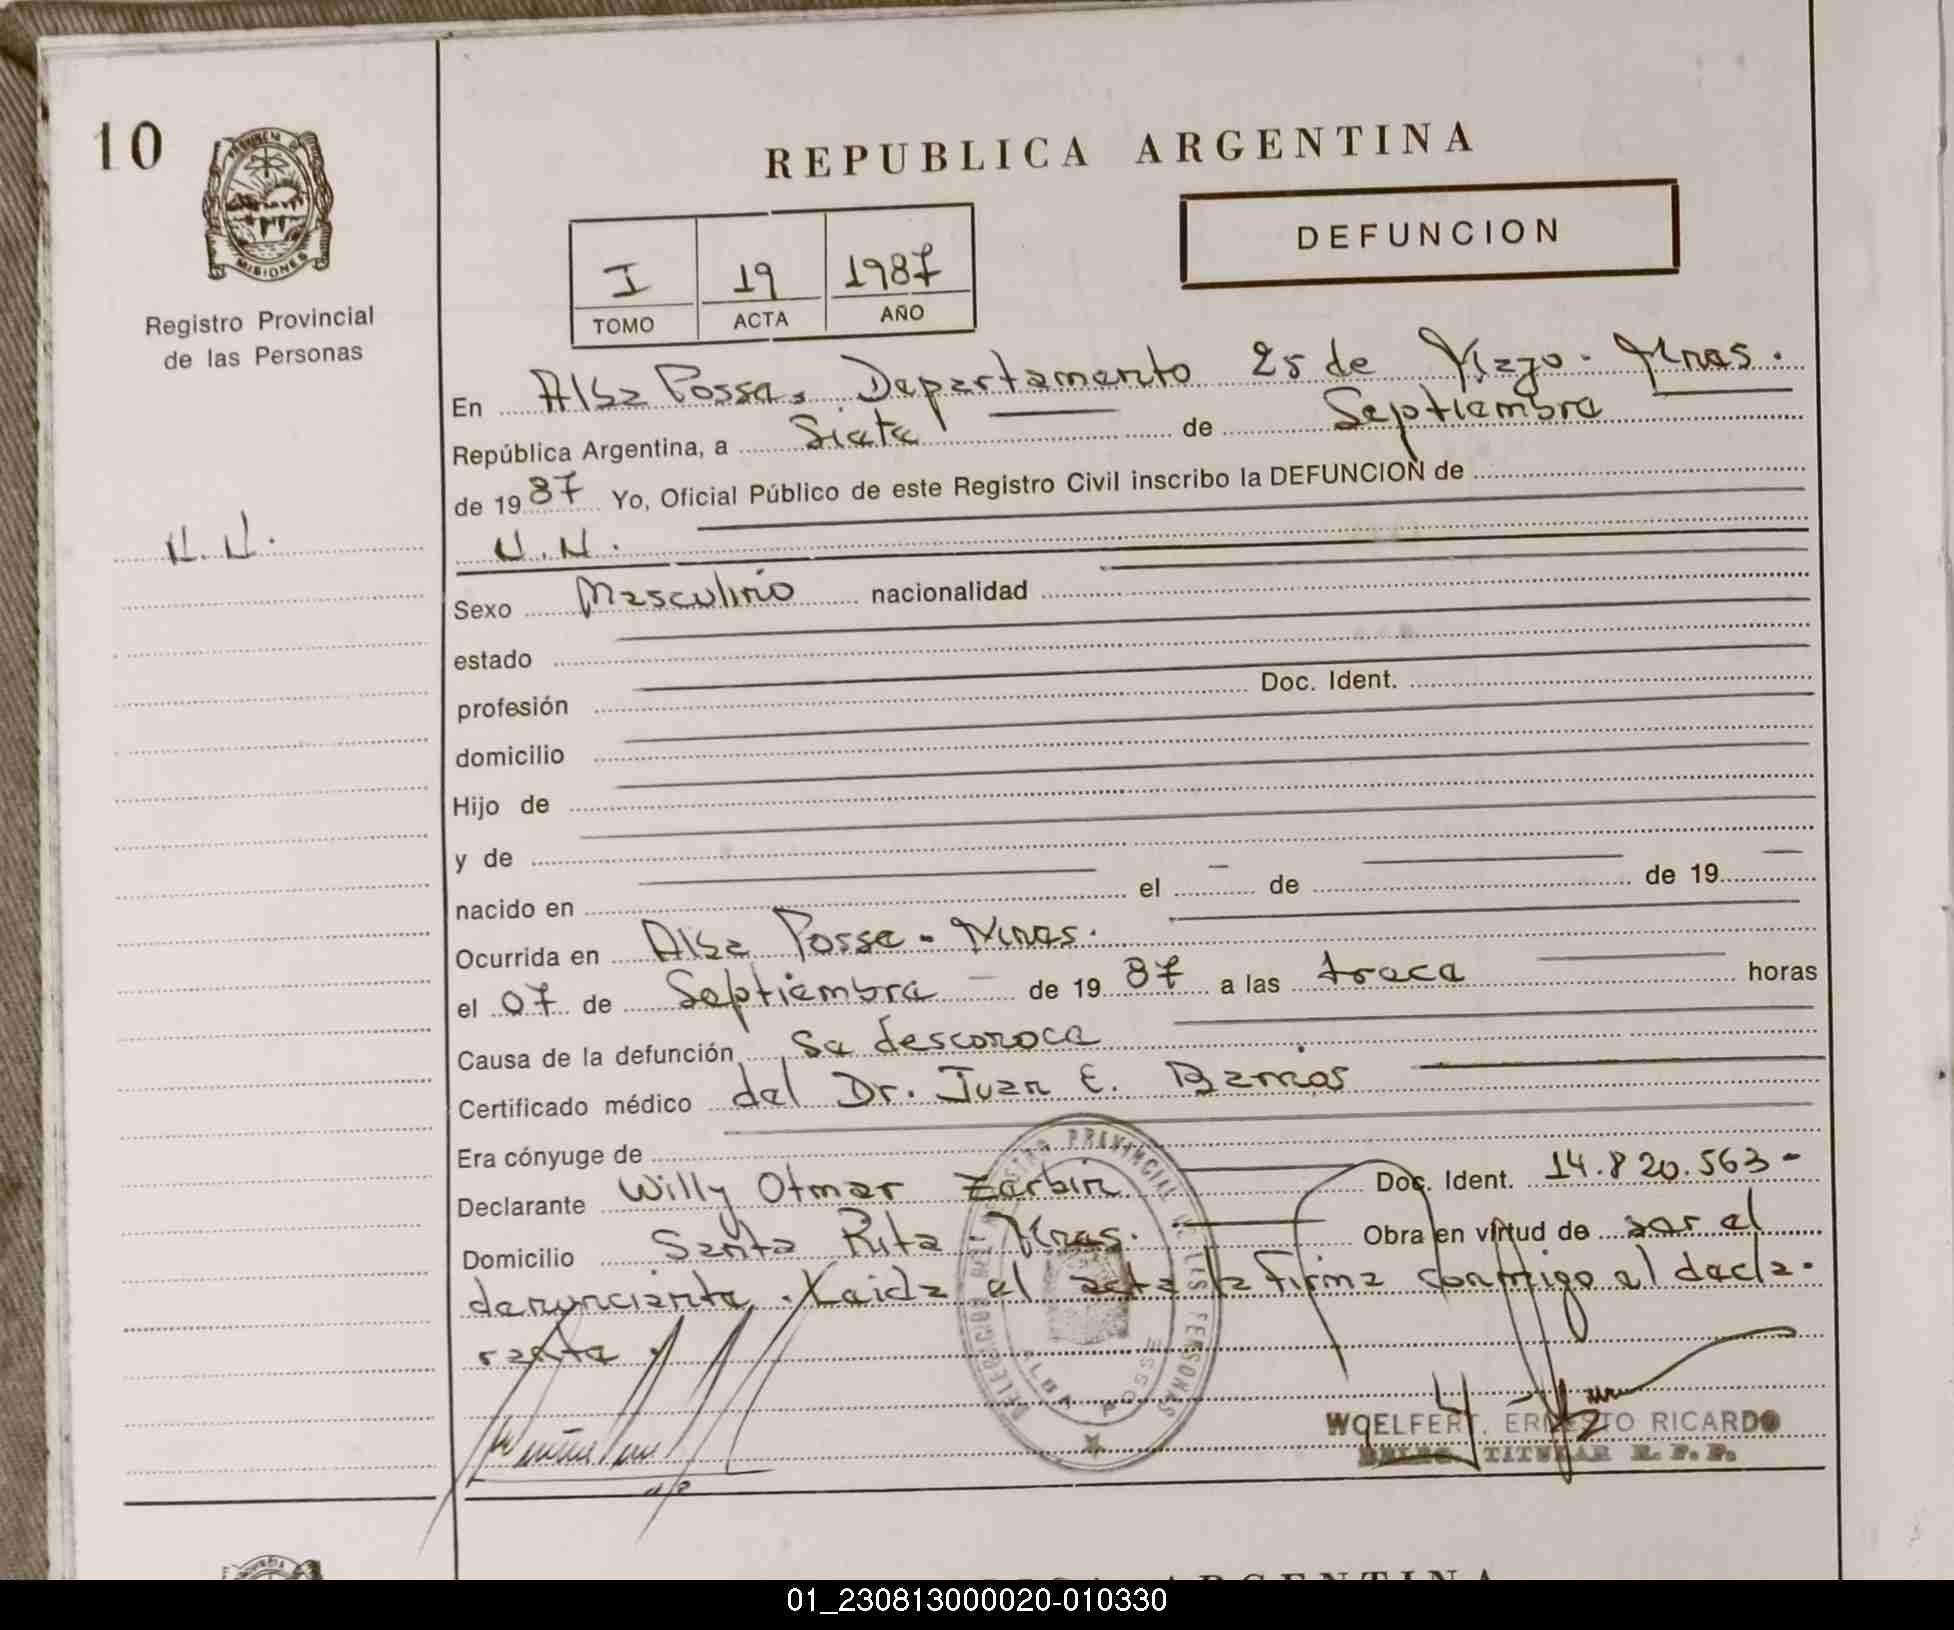 10
PROVINCIA DE
MISIONES
Registro Provincial
de las Personas
N.N.
REPUBLICA ARGENTINA
DEFUNCION
I 19 1987
TOMO ACTA AÑO
En Alba Posse, Departamento 25 de Mayo - Mnes.
República Argentina, a Siete de Septiembre
de 1987 Yo, Oficial Público de este Registro Civil inscribo la DEFUNCION de
N.N.
Sexo Masculino nacionalidad
estado
profesión Doc. Ident.
domicilio
Hijo de
y de
nacido en el de de 19
Ocurrida en Alba Posse - Mnes.
el 07 de Septiembre de 1987 a las trece horas
Causa de la defunción Se desconoce
Certificado médico del Dr. Juan E. Barrios
Era cónyuge de
Declarante Willy Otmar Zerbin Doc. Ident. 14.820.563-
Domicilio Santa Rita - Mnes. Obra en virtud de ser el
denunciante. Leída el acta la firma conmigo el decla-
rante.
REGISTRO PROVINCIAL DE LAS PERSONAS
ALBA POSSE
WOELFERT, ERNESTO RICARDO
TITULAR R.P.P.
REPUBLICA ARGENTINA
01_230813000020-010330